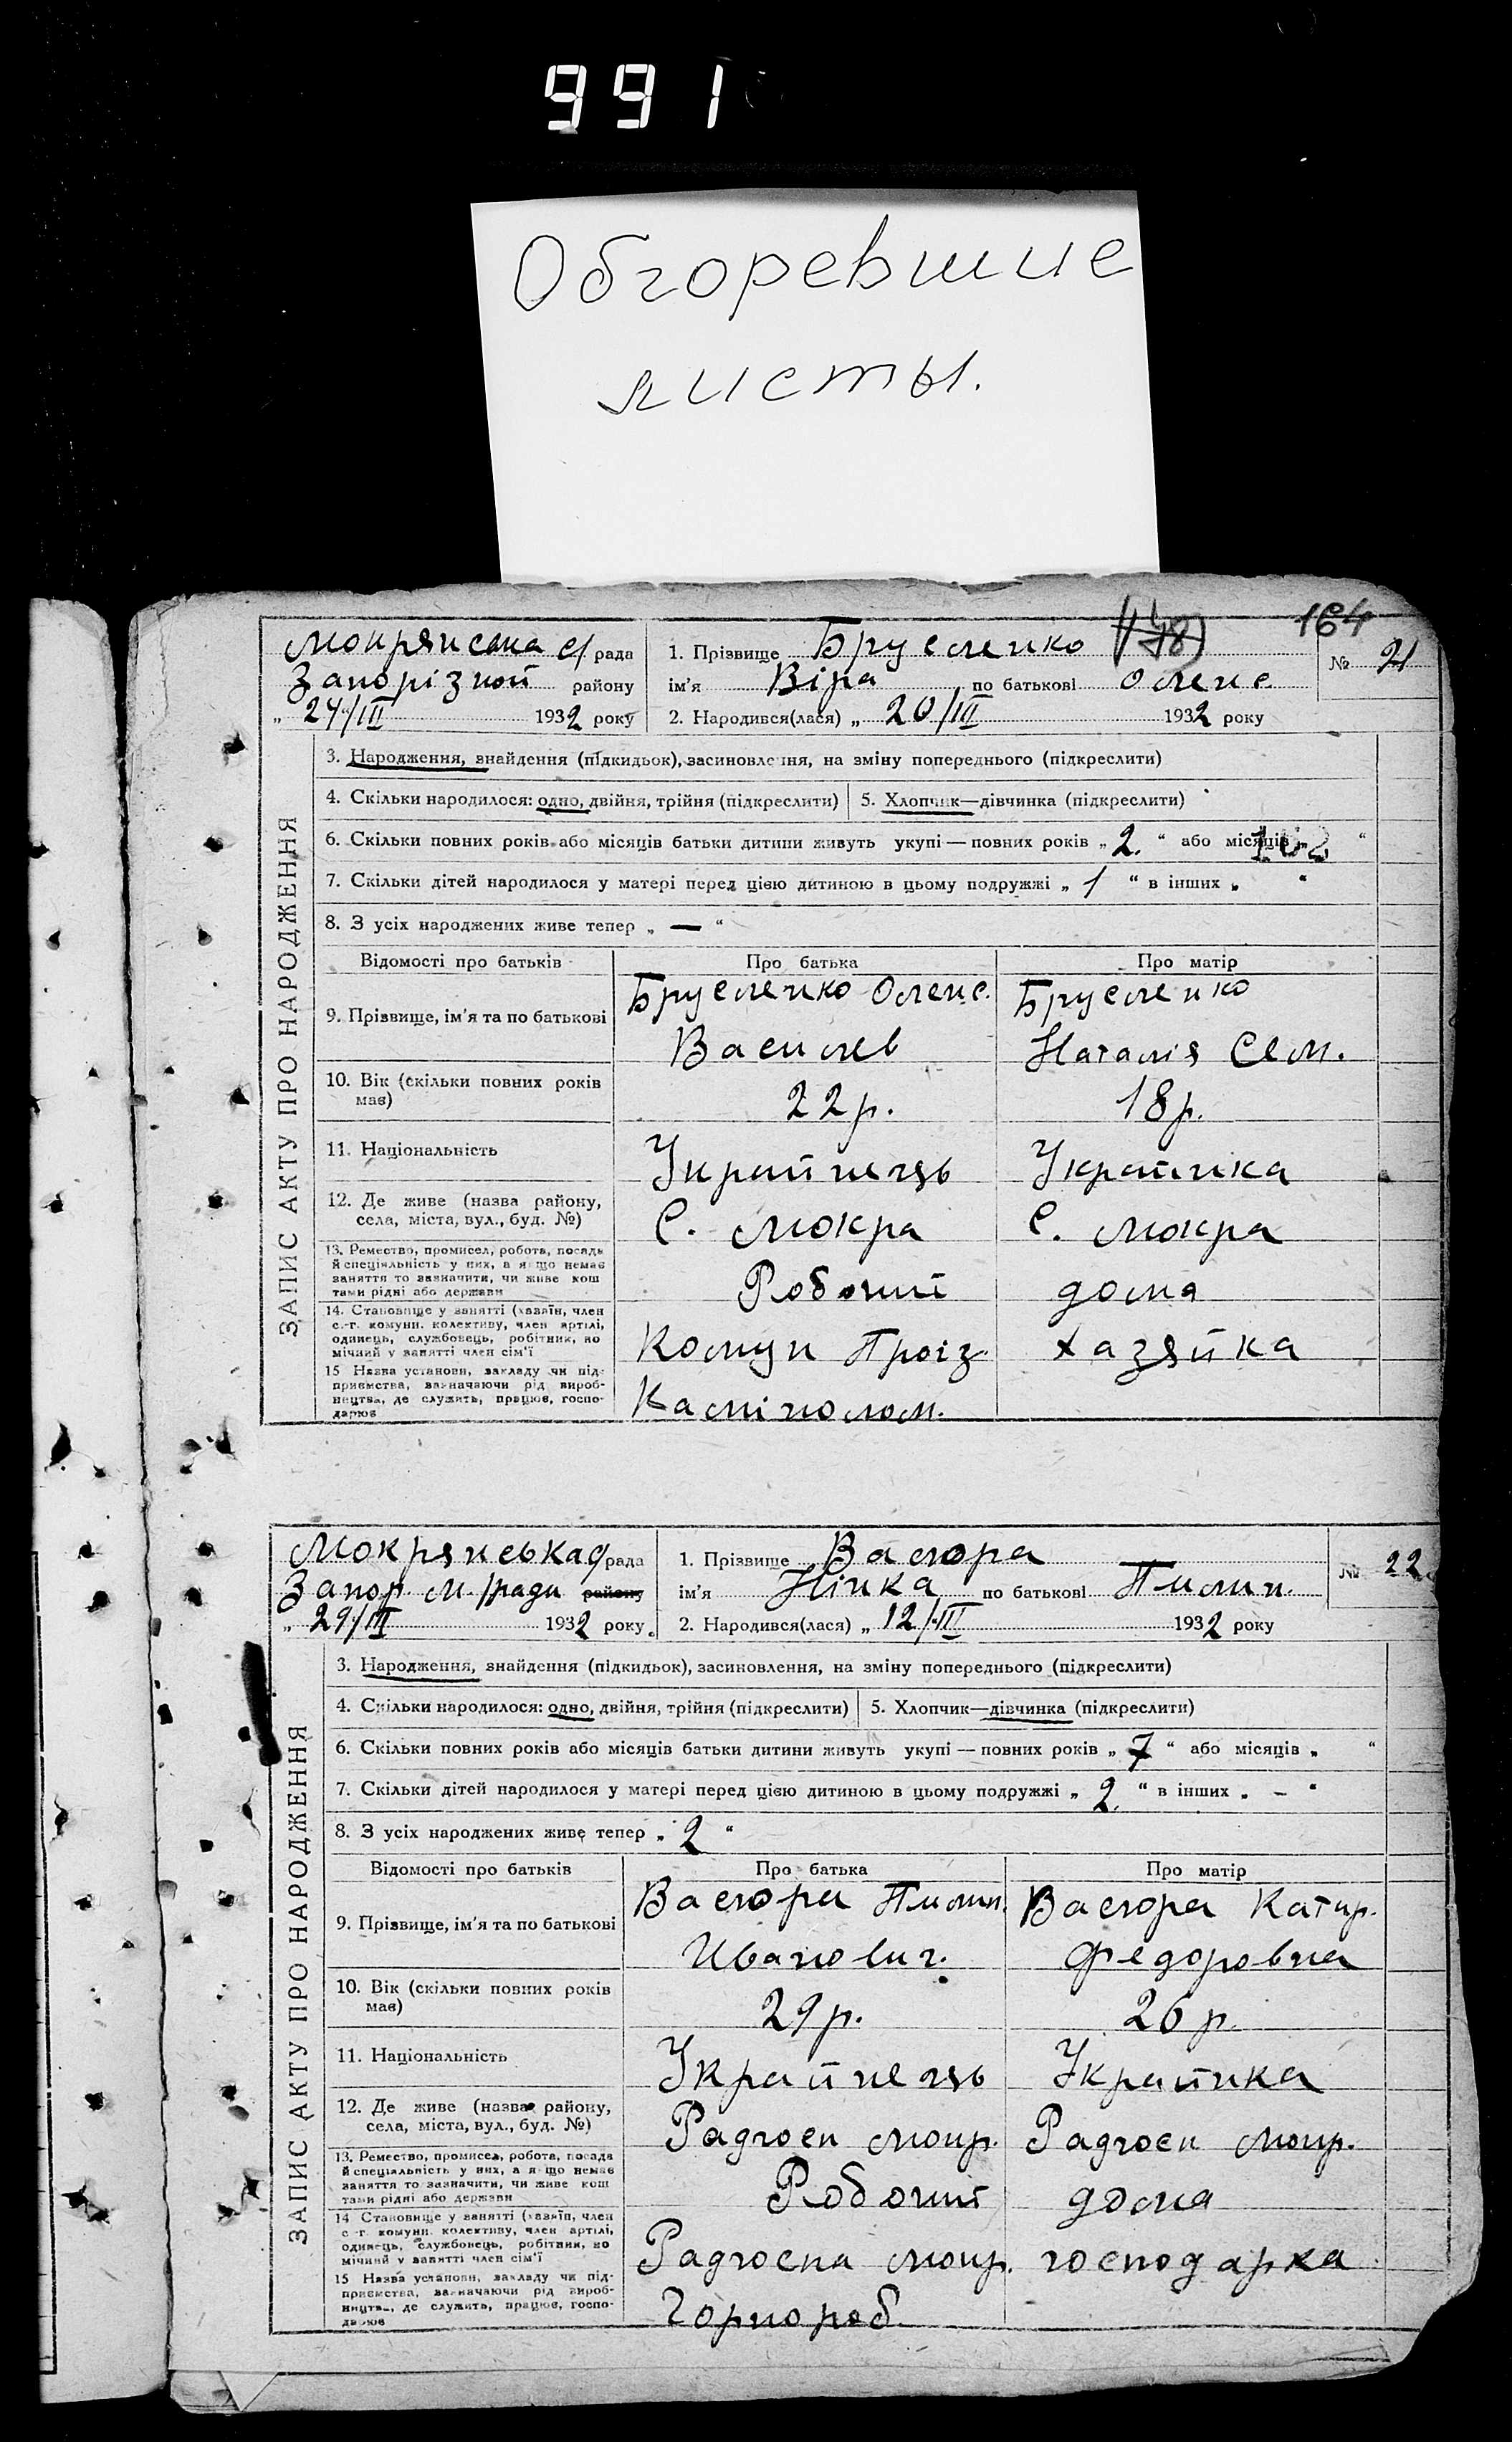 991
Обгоревшие
листы.
164
(148)
Мокрянська с/рада
Запорізкой району
„ 24/III 1932 року
1. Прізвище Брусленко
ім'я Віра по батькові Олекс.
2. Народився(лася) „ 20/III 1932 року
№ 21
ЗАПИС АКТУ ПРО НАРОДЖЕННЯ
3. Народження, знайдення (підкидьок), засиновлення, на зміну попереднього (підкреслити)
4. Скільки народилося: одно, двійня, трійня (підкреслити) 5. Хлопчик—дівчинка (підкреслити)
6. Скільки повних років або місяців батьки дитини живуть укупі — повних років „ 2. “ або місяців „ “
7. Скільки дітей народилося у матері перед цією дитиною в цьому подружжі „ 1 “ в інших „ “
8. З усіх народжених живе тепер „ — “
Відомості про батьків Про батька Про матір
9. Прізвище, ім'я та по батькові
Брусленко Олекс. Брусленко
Василев Наталія Сем.
10. Вік (скільки повних років
має)
22 р. 18 р.
11. Національність
Украйнець Украйнка
12. Де живе (назва району,
села, міста, вул., буд. №)
С. Мокра С. Мокра
13. Ремество, промисел, робота, посада
й спеціяльність у них, а якщо немає
заняття то зазначити, чи живе кош
тами рідні або держави
Робочий дома
14. Становище у занятті (хазяїн, член
с.-г. комуни, колективу, член артілі,
одинець, службовець, робітник, по
мічний у занятті член сім'ї
Комун Проіз. хазяйка
15 Назва установи, закладу чи під-
приємства, зазначаючи рід вироб-
ництва, де служить, працює, госпо-
дарює
Камінолом.
Мокрянська с/рада
Запор. м. /ради району
„ 29/III 1932 року
1. Прізвище Васюра
ім'я Нінка по батькові Пилип.
2. Народився(лася) „ 12/III 1932 року
№ 22
ЗАПИС АКТУ ПРО НАРОДЖЕННЯ
3. Народження, знайдення (підкидьок), засиновлення, на зміну попереднього (підкреслити)
4. Скільки народилося: одно, двійня, трійня (підкреслити) 5. Хлопчик—дівчинка (підкреслити)
6. Скільки повних років або місяців батьки дитини живуть укупі — повних років „ 7 “ або місяців „ “
7. Скільки дітей народилося у матері перед цією дитиною в цьому подружжі „ 2. “ в інших „ – “
8. З усіх народжених живе тепер „ 2 “
Відомості про батьків Про батька Про матір
9. Прізвище, ім'я та по батькові
Васюра Пилип. Васюра Катир.
Иванович. Федоровна
10. Вік (скільки повних років
має)
29 р. 26 р.
11. Національність
Украйнець Украйнка
12. Де живе (назва району,
села, міста, вул., буд. №)
Радгосп Мокр. Радгосп Мокр.
13. Ремество, промисел, робота, посада
й спеціяльність у них, а якщо немає
заняття то зазначити, чи живе кош
тами рідні або держави
Робочий дома
14 Становище у занятті (хазяїн, член
с-г. комуни, колективу, член артілі,
одинець, службовець, робітник, по
мічний у занятті член сім'ї
Радгоспа Мокр. господарка
15 Назва установи, закладу чи під-
приємства, зазначаючи рід вироб-
ництва, де служить, працює, госпо-
дарює
Чорнороб.